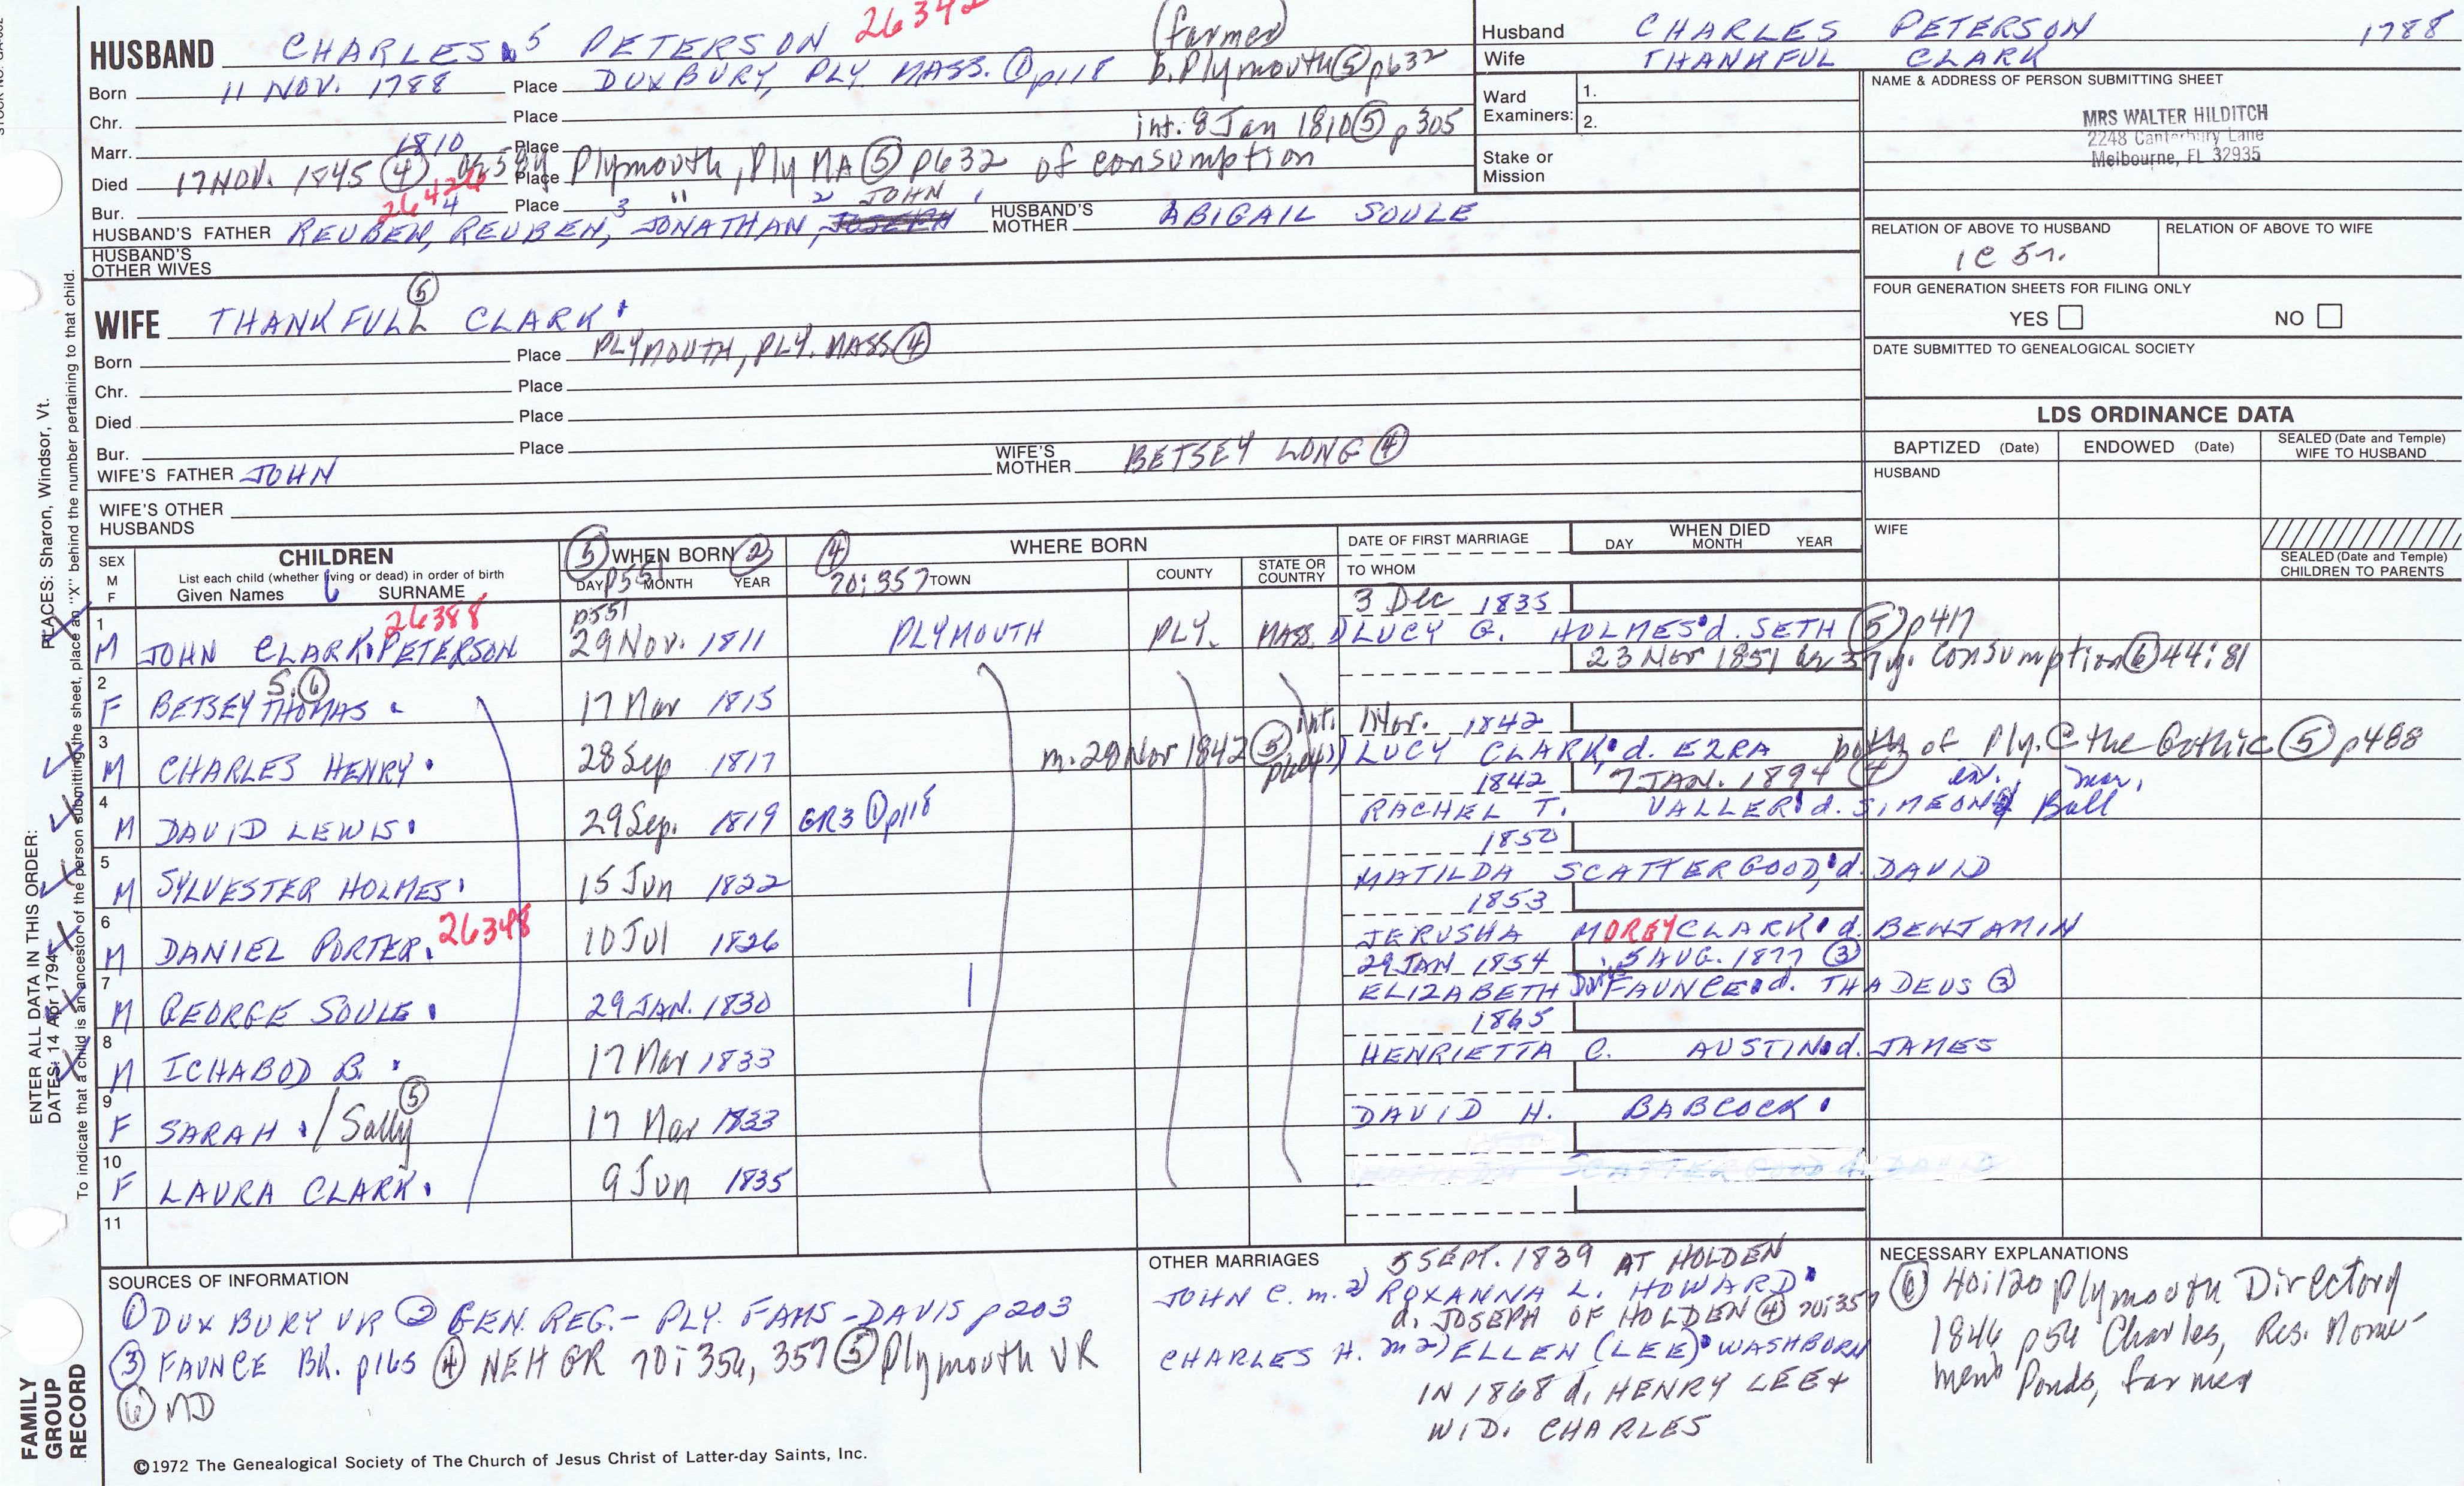 HUSBAND CHARLES 5 PETERSON (farmer)
Born 11 NOV. 1788 Place DUXBURY, PLY. MASS. ① p118 b. Plymouth ⑤ p632
Chr. Place
int. 8 Jan 1810 ⑤ p305
Marr. 1810 Place
Died 17 NOV. 1845 ④ Place Plymouth, Ply MA ⑤ p632 of consumption
Bur. Place "
HUSBAND'S FATHER REUBEN, 4 REUBEN, 3 JONATHAN, 2 JOHN 1 HUSBAND'S MOTHER ABIGAIL SOULE
HUSBAND'S OTHER WIVES
Husband CHARLES PETERSON 1788
Wife THANKFUL CLARK
Ward Examiners: 1.
2.
Stake or Mission
NAME & ADDRESS OF PERSON SUBMITTING SHEET
MRS WALTER HILDITCH
2248 Canterbury Lane
Melbourne, FL 32935
RELATION OF ABOVE TO HUSBAND RELATION OF ABOVE TO WIFE
1C 5r.
FOUR GENERATION SHEETS FOR FILING ONLY
YES NO
DATE SUBMITTED TO GENEALOGICAL SOCIETY
WIFE THANKFULL ⑤ CLARK
Born Place PLYMOUTH, PLY. MASS ④
Chr. Place
Died Place
Bur. Place
WIFE'S FATHER JOHN WIFE'S MOTHER BETSEY LONG ④
WIFE'S OTHER HUSBANDS
LDS ORDINANCE DATA
BAPTIZED (Date) ENDOWED (Date) SEALED (Date and Temple) WIFE TO HUSBAND
HUSBAND
WIFE
SEALED (Date and Temple) CHILDREN TO PARENTS
SEX M F CHILDREN List each child (whether living or dead) in order of birth Given Names SURNAME
⑤ WHEN BORN ② DAY MONTH YEAR p551
④ 70:357 WHERE BORN TOWN COUNTY STATE OR COUNTRY
DATE OF FIRST MARRIAGE TO WHOM
WHEN DIED DAY MONTH YEAR
26388 p551 3 Dec 1835
1 M JOHN CLARK PETERSON 29 Nov. 1811 PLYMOUTH PLY. MASS. 1) LUCY G. HOLMES d. SETH ⑤ p417
23 Nov 1851 37 y. consumption ⑥ 44:81
2 F BETSEY THOMAS S. ⑥ 17 Mar 1815
int. Nov. 1842
3 M CHARLES HENRY 28 Sep 1817 m. 29 Nov 1842 ⑤ 1) LUCY CLARK, d. EZRA both of Ply. C the Gothic ⑤ p488
1842 7 JAN. 1894 ④
4 M DAVID LEWIS 29 Sep. 1819 GR3 ① p118 RACHEL T. VALLER d. SIMEON
1850
5 M SYLVESTER HOLMES 15 Jun 1822 MATILDA SCATTERGOOD, d. DAVID
1853
6 M DANIEL PORTER. 26348 10 Jul 1826 JERUSHA MOREY CLARK d. BENJAMIN
29 JAN 1854 5 AUG. 1877 ③
7 M GEORGE SOULE 29 JAN. 1830 ELIZABETH FAUNCE d. THADEUS ③
1865
8 M ICHABOD B. 17 Mar 1833 HENRIETTA C. AUSTIN d. JAMES
9 F SARAH / Sally ⑤ 17 Mar 1833 DAVID H. BABCOCK
10 F LAURA CLARK. 9 Jun 1835
11
SOURCES OF INFORMATION
① DUXBURY VR ② GEN. REG.- PLY. FAMS - DAVIS p203
③ FAUNCE BK. p165 ④ NEHGR 70:356, 357 ⑤ Plymouth VR
⑥ MD
OTHER MARRIAGES 5 SEPT. 1839 AT HOLDEN
JOHN C. m. 2) ROXANNA L. HOWARD
d. JOSEPH OF HOLDEN ④ 70:357
CHARLES H. m 2) ELLEN (LEE) WASHBURN
IN 1868 d. HENRY LEE +
WID. CHARLES
NECESSARY EXPLANATIONS
⑥ 40:120 Plymouth Directory
1846 p56 Charles, Res. Monu-
ment Ponds, farmer
©1972 The Genealogical Society of The Church of Jesus Christ of Latter-day Saints, Inc.
FAMILY GROUP RECORD
ENTER ALL DATA IN THIS ORDER:
DATES: 14 Apr 1794 PLACES: Sharon, Windsor, Vt.
To indicate that a child is an ancestor of the person submitting the sheet, place an "X" behind the number pertaining to that child.